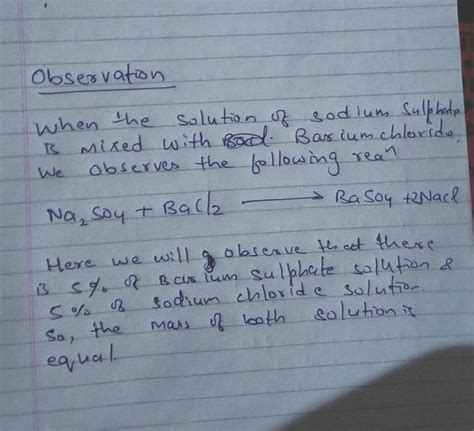 Observation
When the solution of sodium sulphate
is mixed with Barium chloride,
we observes the following rean
Na2SO4 + BaCl2 → BaSO4 + 2NaCl
Here we will observe that there
is 5% of Barium sulphate solution &
5% of sodium chloride solution.
So, the mass of both solution is
equal.